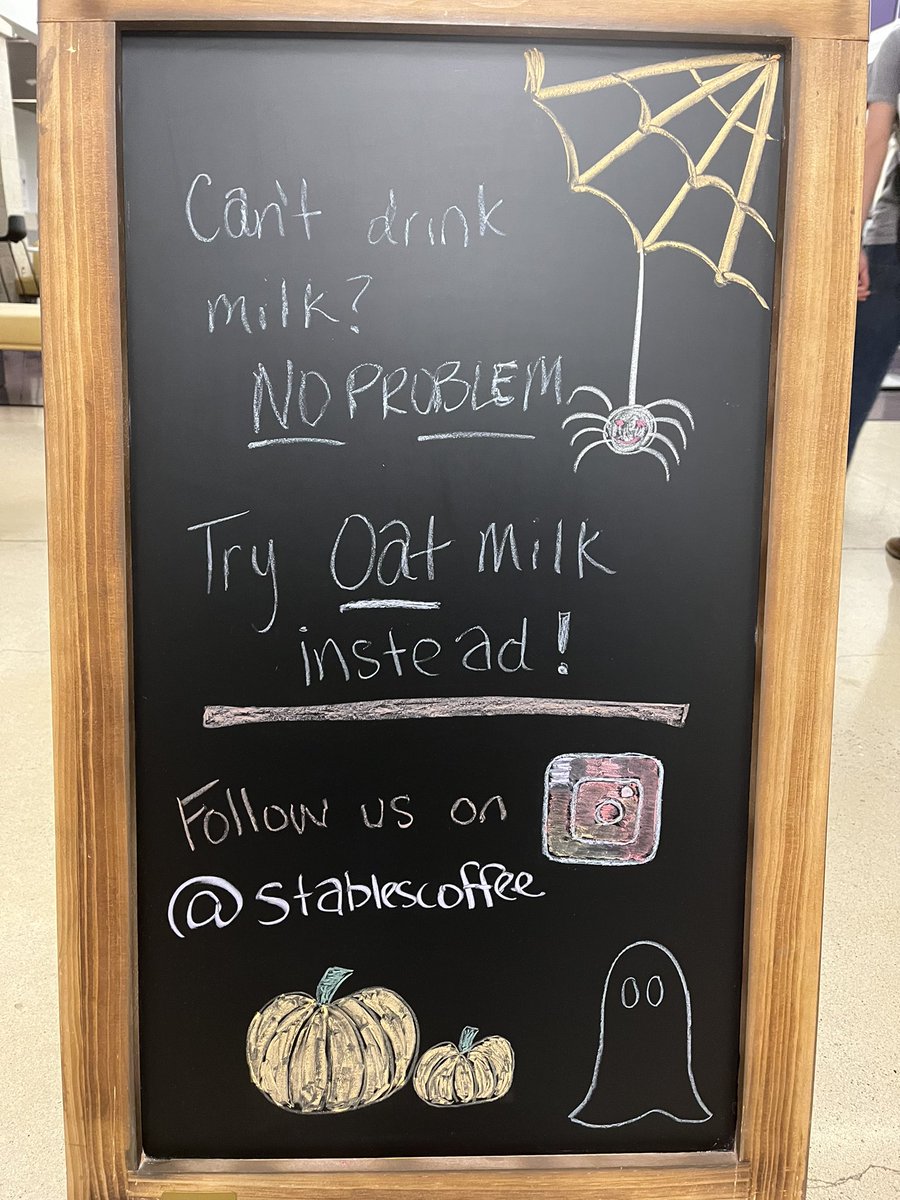 Can't drink
milk?
NO PROBLEM
Try Oat milk
instead!
Follow us on
@stablescoffee